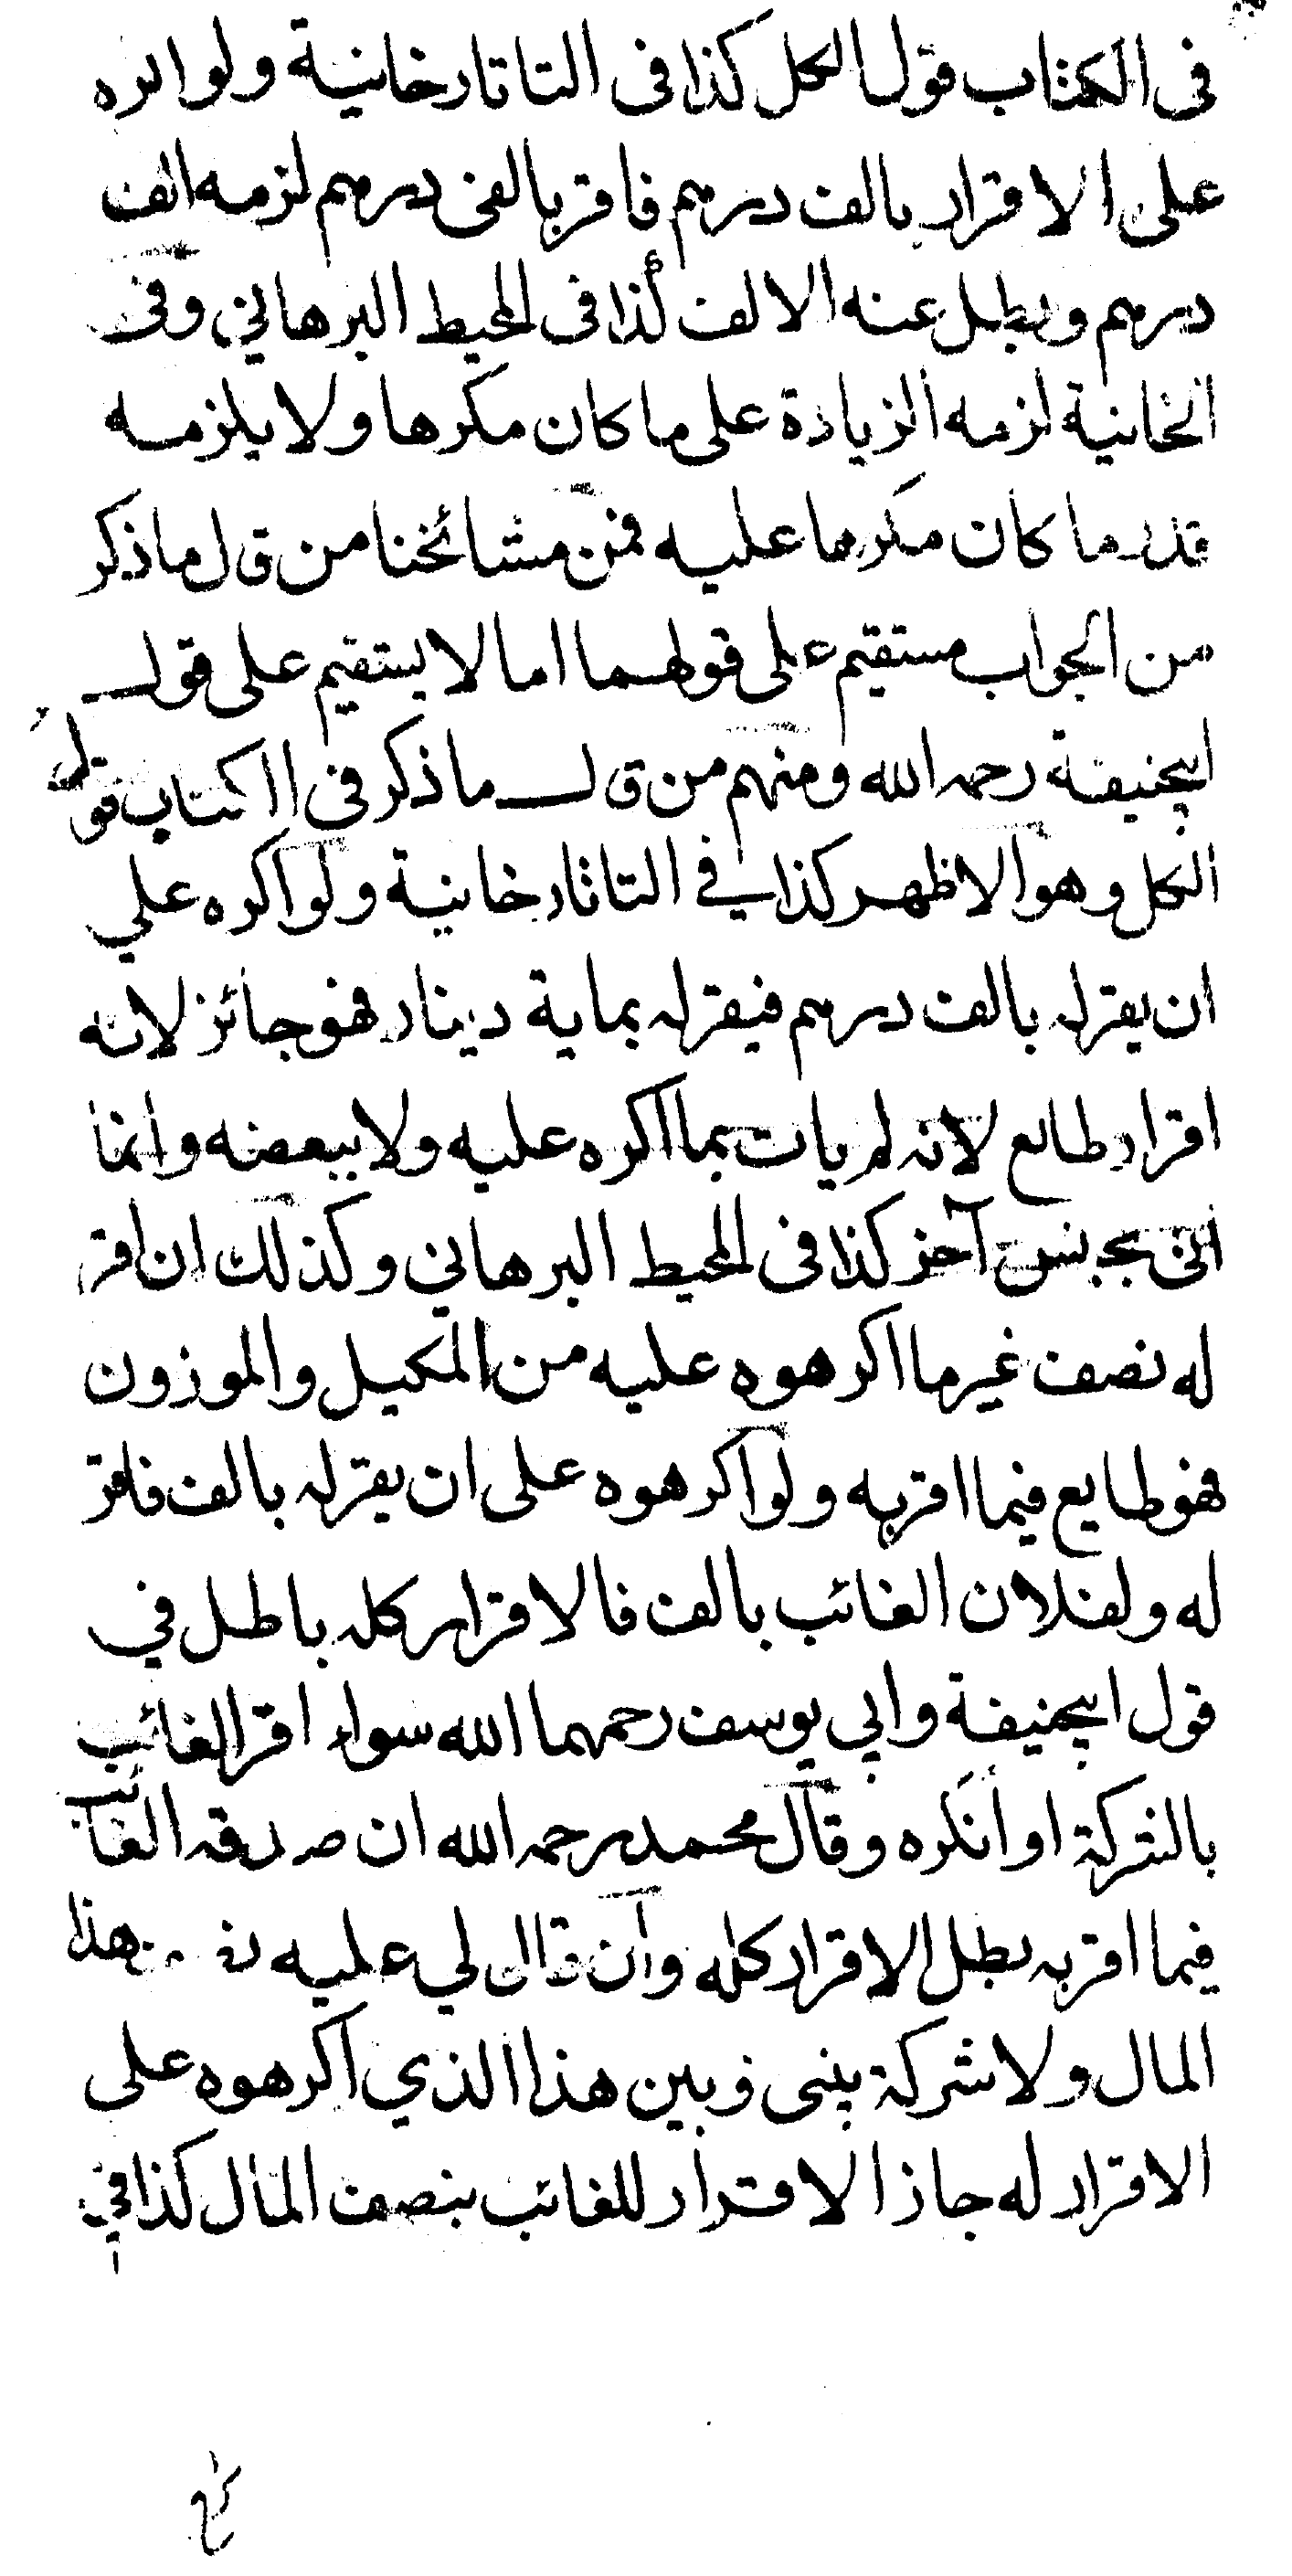 فى الكتاب قول الكل كذا فى التاتارخانية ولو اكره
على الاقرار بالف درهم فاقر بالفى درهم لزمه الف
درهم وبطل عنه الالف كذا فى المحيط البرهاني وفى
الخانية لزمه الزيادة على ما كان مكرها ولا يلزمه
قدر ما كان مكرها عليه فمن مشائخنا من قال ما ذكر
من الجواب مستقيم على قولهما اما لا يستقيم على قول
ابيحنيفة رحمه الله ومنهم من قال ما ذكر فى الكتاب قول
الكل وهو الاظهر كذا في التاتارخانية ولو اكره علي
ان يقر له بالف درهم فيقر له بماية دينار فهو جائز لانه
اقرار طايع لانه لم يات بما اكره عليه ولا ببعضه وانما
اتى بجنس آخر كذا فى المحيط البرهاني وكذلك ان اقر
له نصف غير ما اكرهوه عليه من المكيل والموزون
فهو طايع فيما اقر به ولو اكرهوه على ان يقر له بالف فاقر
له ولفلان الغائب بالف فالاقرار كله باطل في
قول ابيحنيفة وابي يوسف رحمهما الله سواء اقر الغائب
بالشركة او انكره وقال محمد رحمه الله ان صدقه الغائب
فيما اقر به بطل الاقرار كله وان قال لي عليه هذا
المال ولا شركة بينى وبين هذا الذي اكرهوه على
الاقرار له جاز الاقرار للغائب بنصف المال كذا في